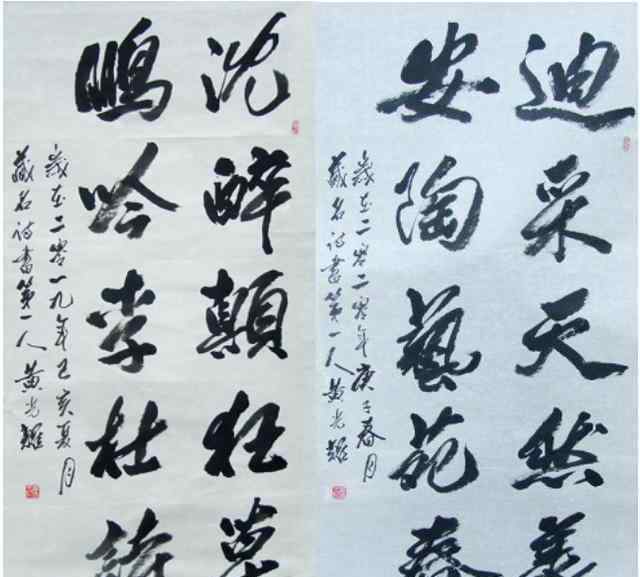 沈醉顛狂草
鵬吟李杜詩
歲在二零一九年己亥夏月
藏名诗書第一人黄光耀
迪采天然美
安陶藝苑
歲在二零二零年庚子春月
藏名诗書第一人黄光耀